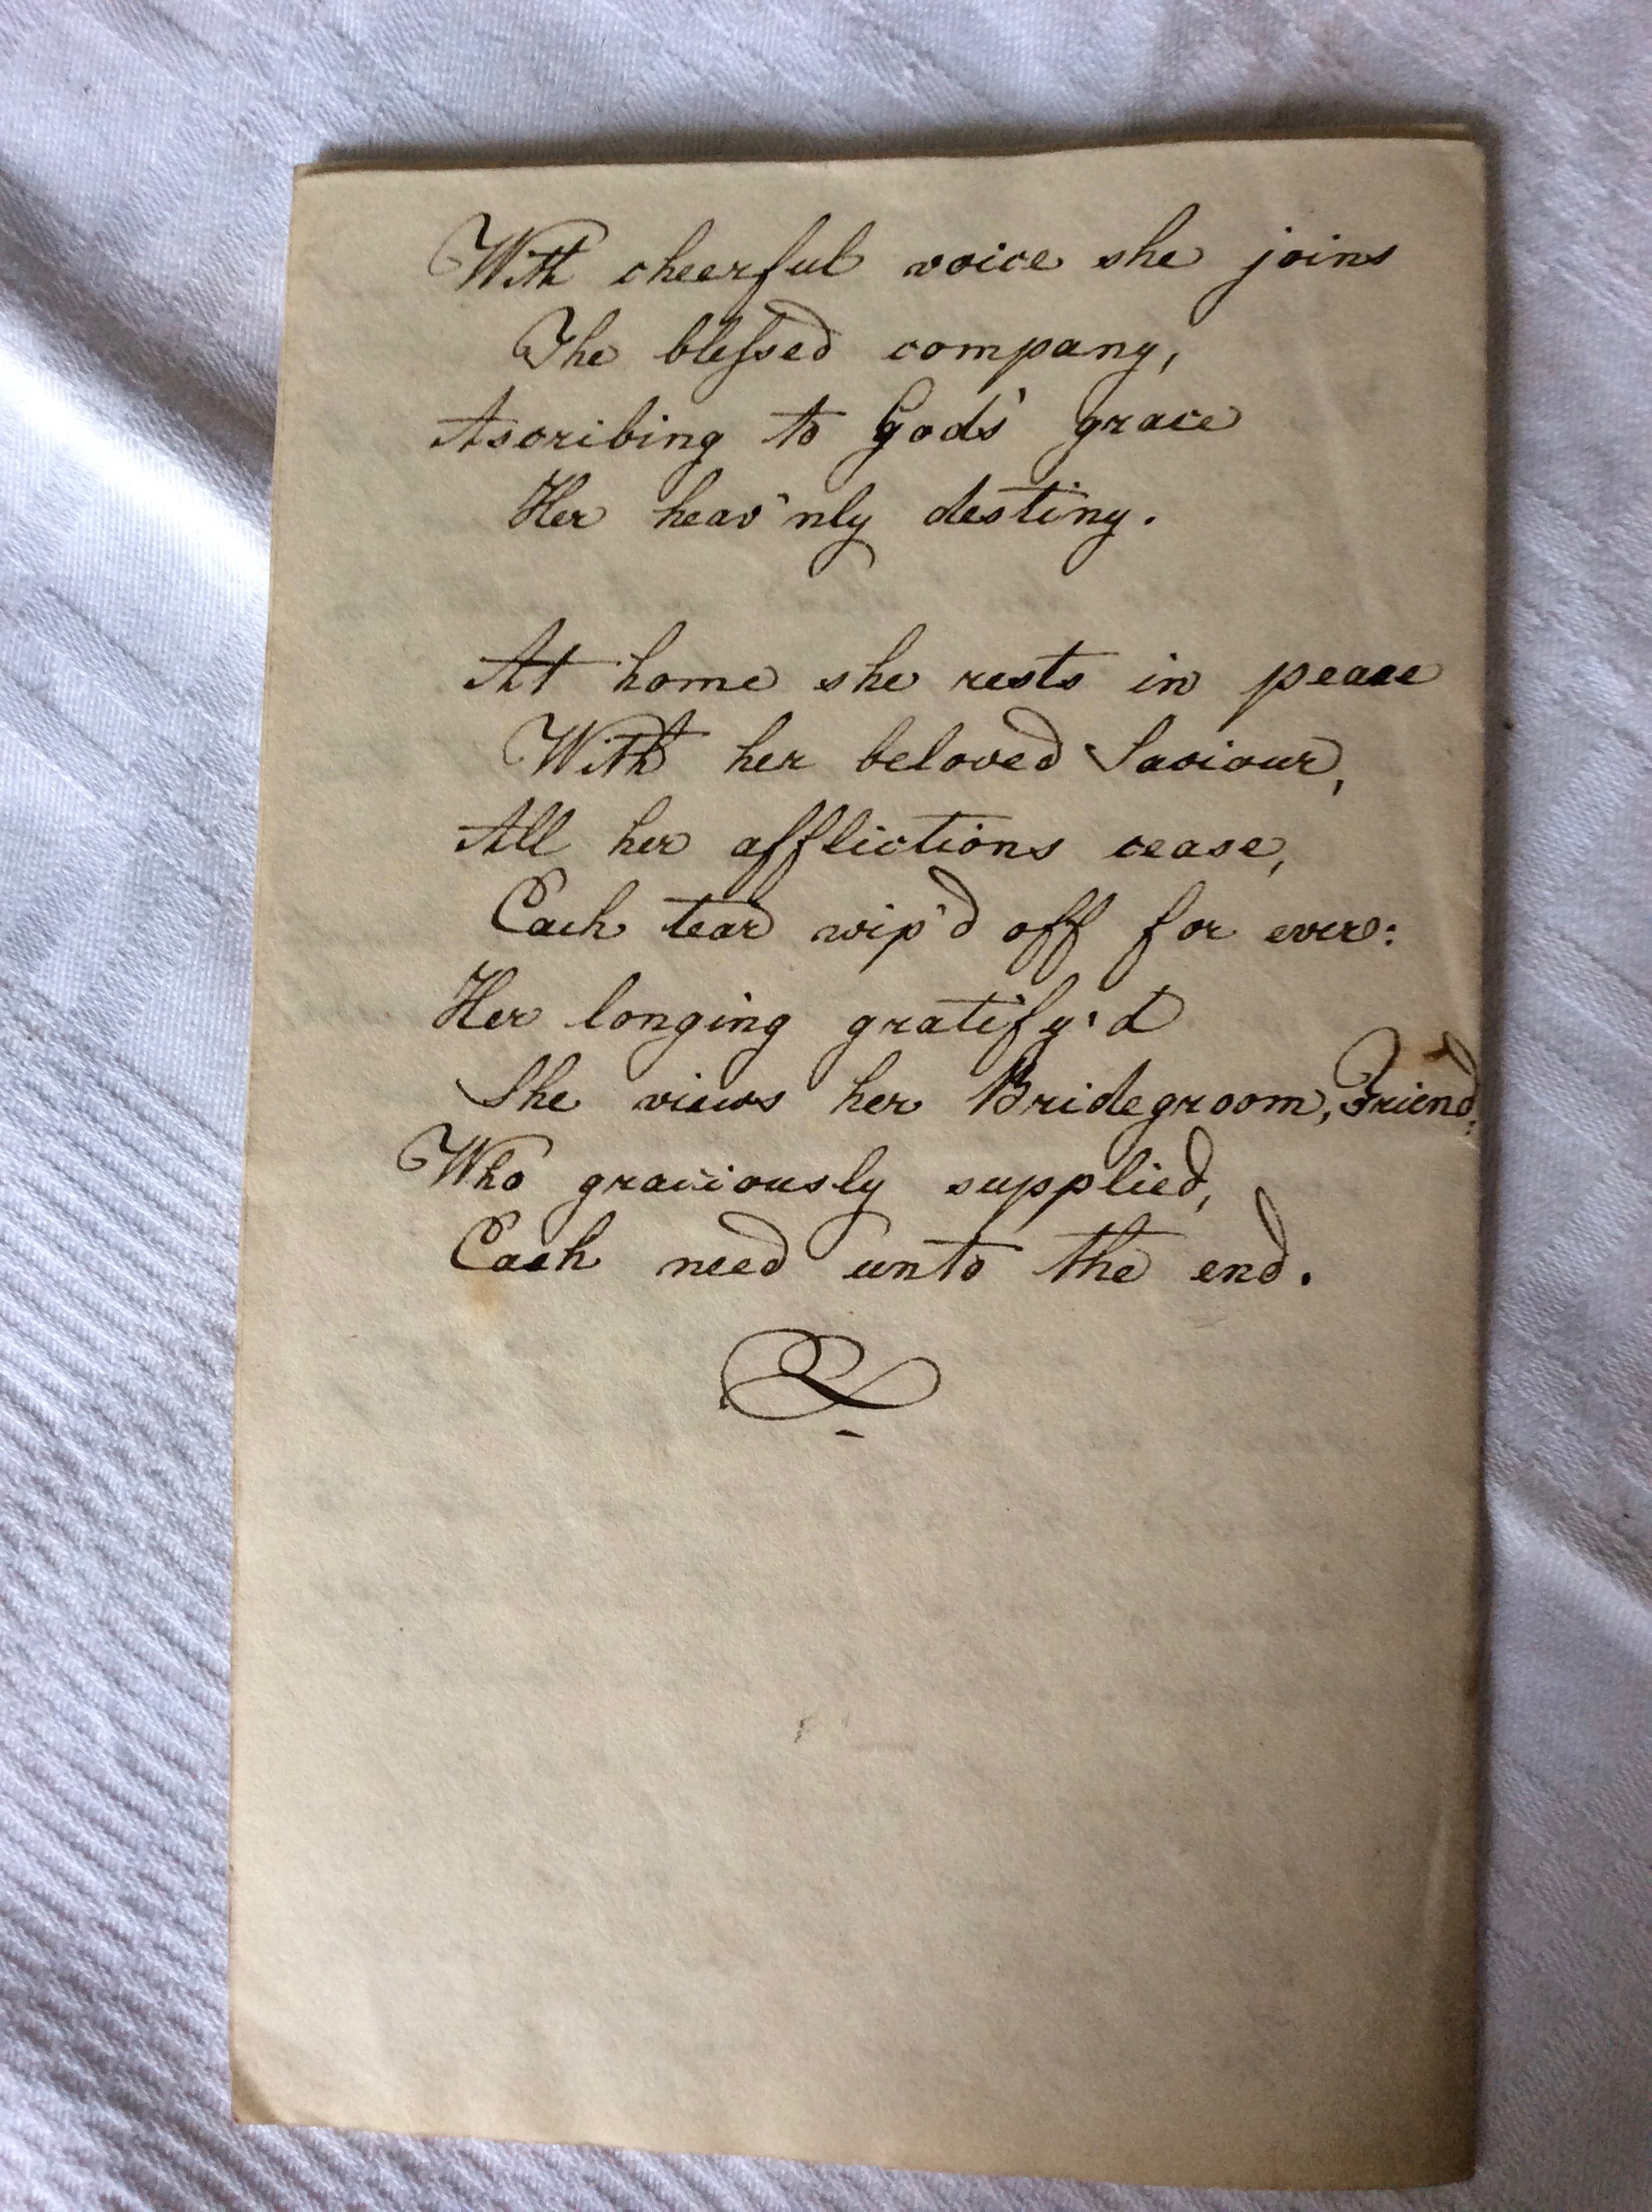 With cheerful voice she joins
The bleſsed company,
Ascribing to Gods' grace
Her heav'nly destiny.
At home she rests in peace
With her beloved Saviour,
All her afflictions cease,
Each tear wip'd off for ever:
Her longing gratify'd
She views her Bridegroom, Friend,
Who graciously supplied,
Each need unto the end.